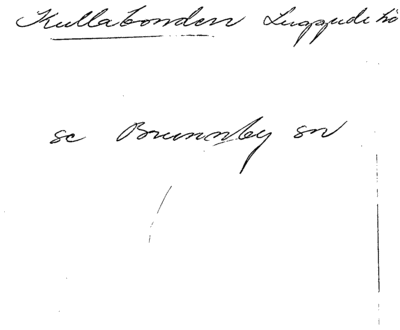 Kullabonden Luggude hd
se Brunnby sn